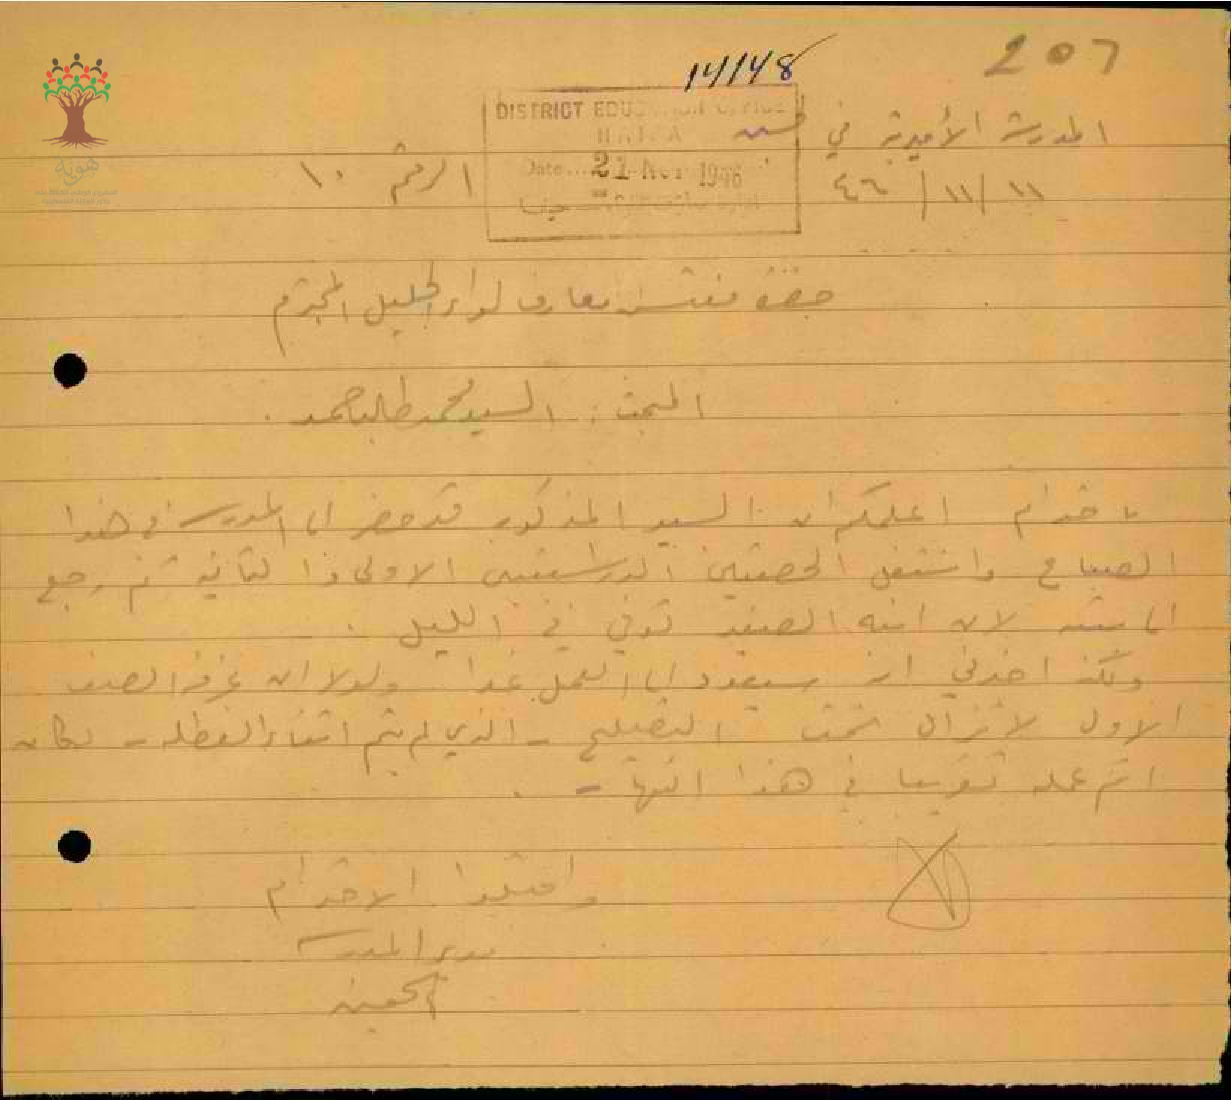 207
14/148
المدرسة الأميرية في
DISTRICT EDUCATION OFFICE
HAIFA
Date... 21 Nov 1946
حيفا
١١/١١/٤٦
الرقم ١٠
هوية
حضرة مفتش معارف لواء الجليل المحترم
المبحث : السيد محمد طالب احمد .
باحترام اعلمكم ان السيد المذكور قد حضر الى المدرسة في هذا
الصباح واشتغل الحصتين الدراسيتين الاولى والثانية ثم رجع
الى بيته لان ابنه الصغير توفي في الليل .
ولكنه اخبرني انه سيعود الى العمل غدا ولولا ان غرفة الصف
الاول لا تزال تحت التصليح - الذي لم يتم اثناء العطلة - لكان
اتم عمله تقريبا في هذا النهار .
واقبلوا الاحترام
مدير المدرسة